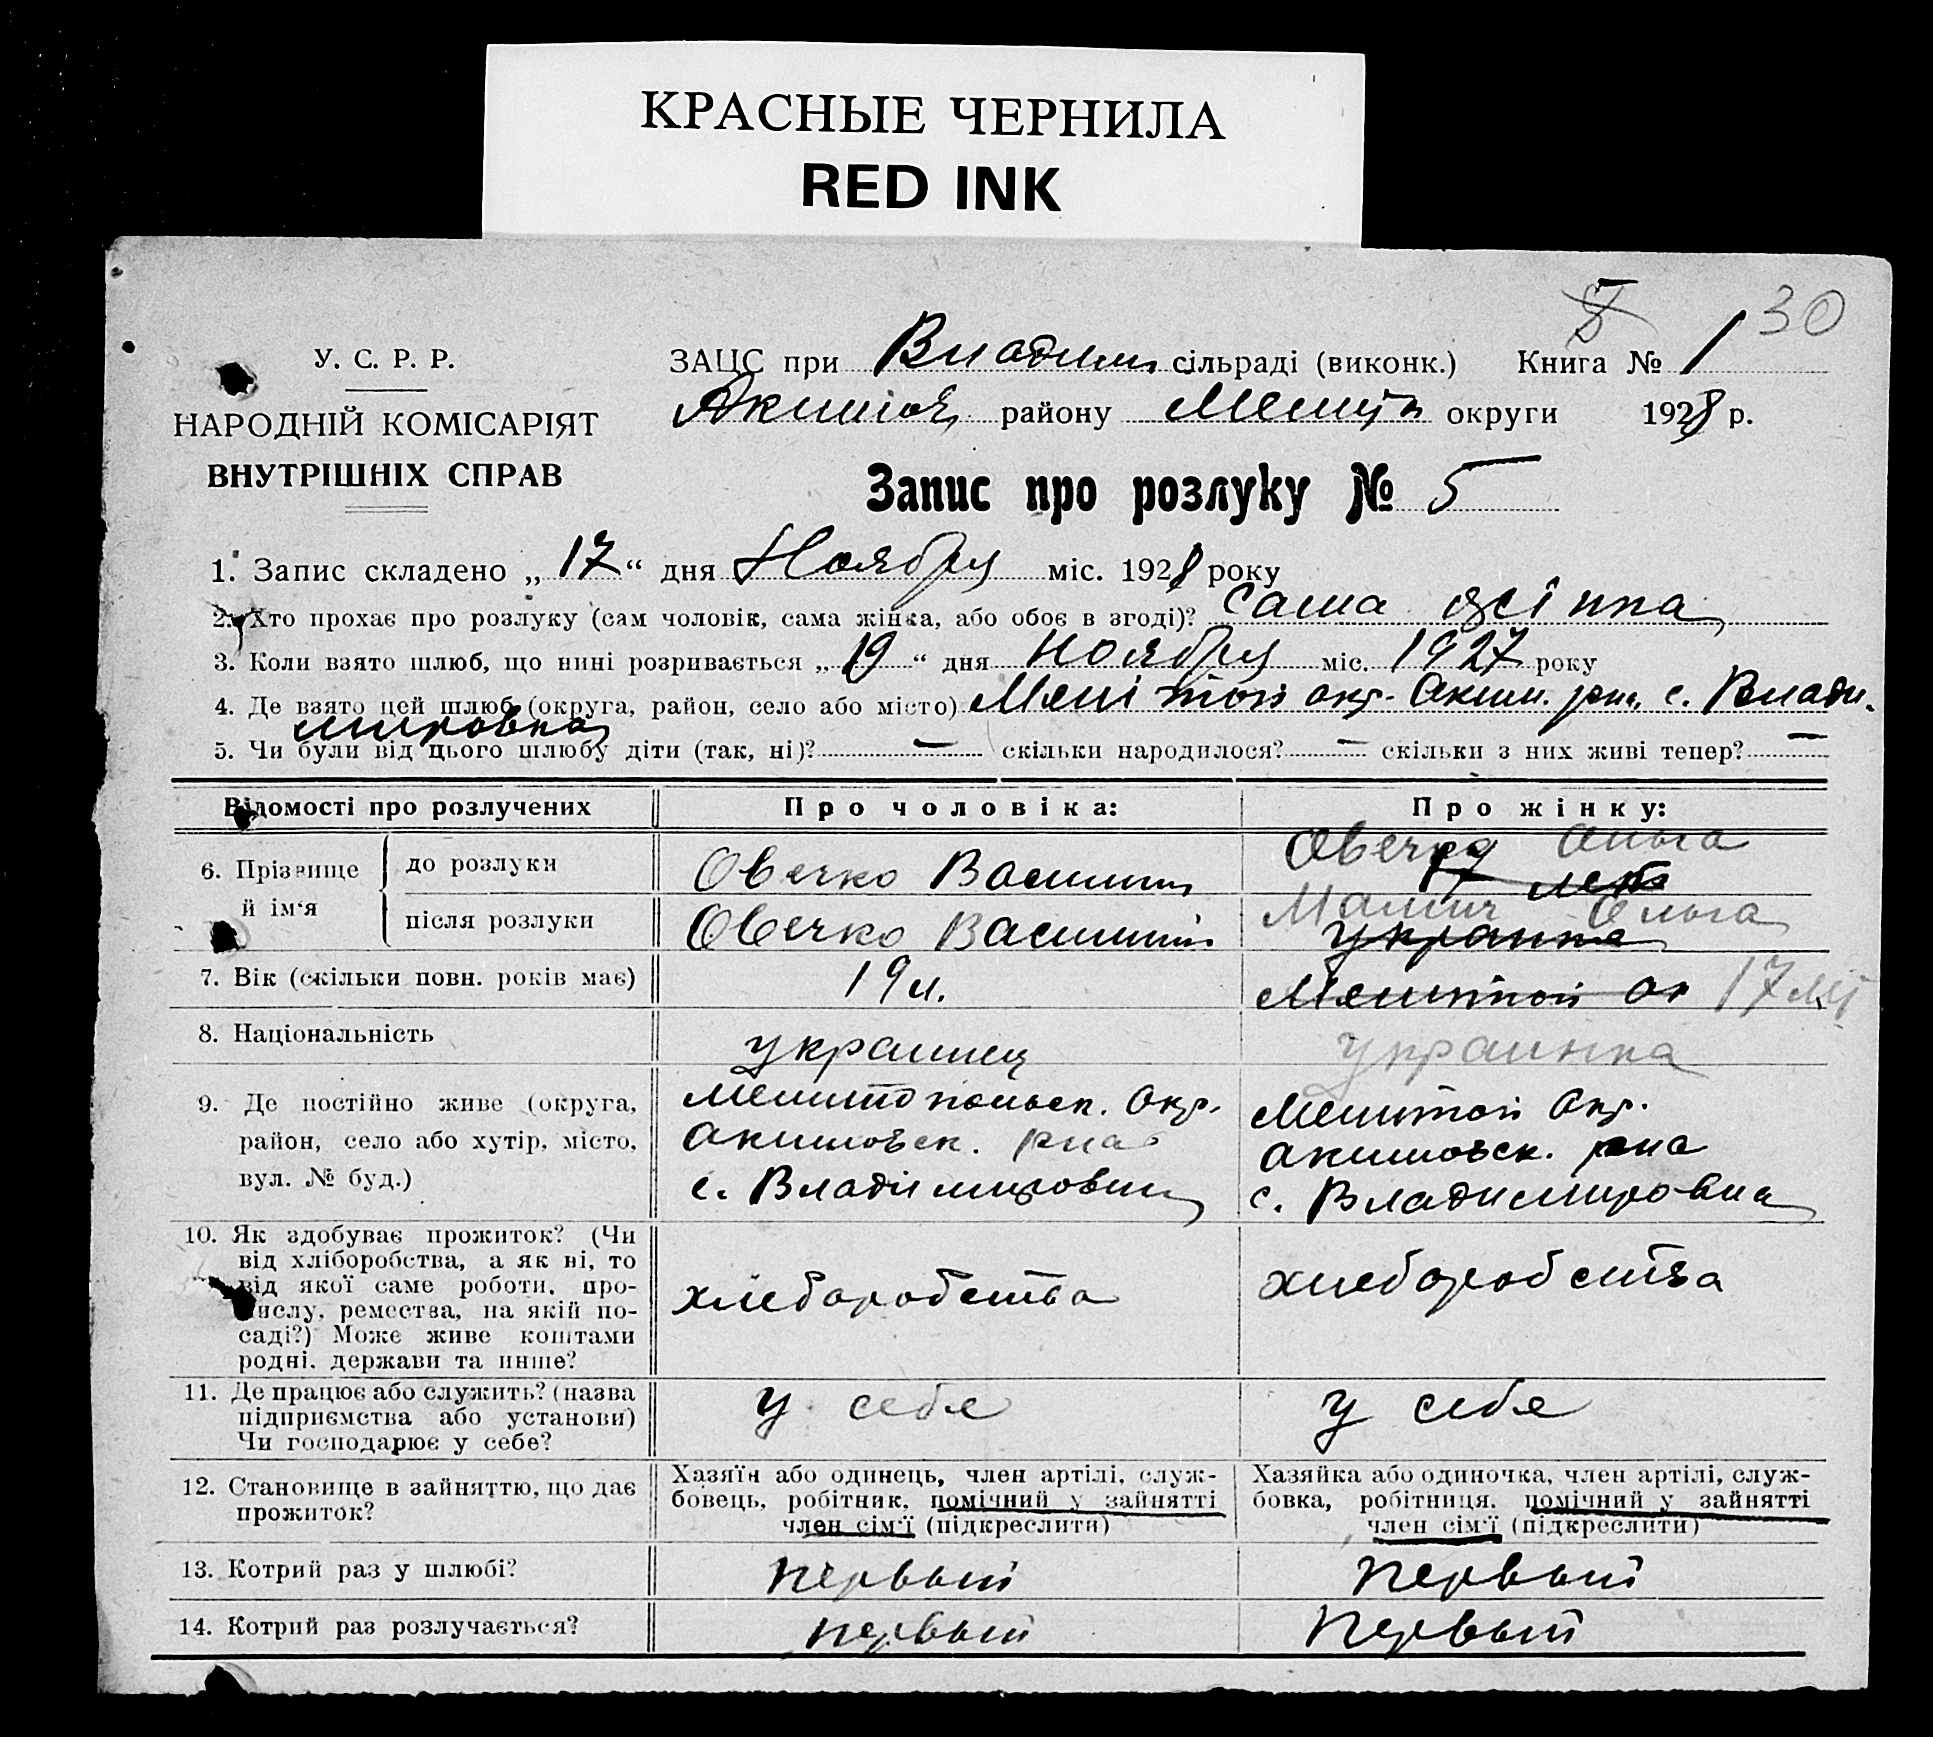 КРАСНЫЕ ЧЕРНИЛА
RED INK
30
У. С. Р. Р.
НАРОДНІЙ КОМІСАРІЯТ
ВНУТРІШНІХ СПРАВ
ЗАЦС при Владим. сільраді (виконк.) Книга № 1
Акимов. району Меліт. округи 1928 р.
Запис про розлуку № 5
1. Запис складено „ 17 “ дня Ноября міс. 1928 року
2. Хто прохає про розлуку (сам чоловік, сама жінка, або обоє в згоді)? Сама жінка
3. Коли взято шлюб, що нині розривається „ 19 “ дня Ноября міс. 1927 року
4. Де взято цей шлюб (округа, район, село або місто) Мелітоп окр. Аким. рна, с. Влади-
мировка
5. Чи були від цього шлюбу діти (так, ні)? — скільки народилося? — скільки з них живі тепер? —
Відомості про розлучених
Про чоловіка:
Про жінку:
6. Прізвище й ім‘я
до розлуки
Овечко Василий
Овечко Ольга
після розлуки
Овечко Василий
Ольга
украинка
7. Вік (скільки повн. років має)
19 л.
Мелитоп ок 17 лет
8. Національність
украинец
украинка
9. Де постійно живе (округа,
район, село або хутір, місто,
вул. № буд.)
Мелитопольск. Окр.
Акимовск. рна
с. Владимировки
Мелитоп Окр.
Акимовск. рна
с. Владимировка
10. Як здобуває прожиток? (Чи
від хліборобства, а як ні, то
від якої саме роботи, про-
мислу, ремества, на якій по-
саді?) Може живе коштами
родні, держави та инше?
хлеборобства
хлеборобства
11. Де працює або служить? (назва
підприємства або установи)
Чи господарює у себе?
у себе
у себе
12. Становище в зайняттю, що дає
прожиток?
Хазяїн або одинець, член артілі, служ-
бовець, робітник, помічний у зайнятті
член сім‘ї (підкреслити)
Хазяйка або одиночка, член артілі, служ-
бовка, робітниця, помічний у зайнятті
член сім‘ї (підкреслити)
13. Котрий раз у шлюбі?
первый
первый
14. Котрий раз розлучається?
первый
первый